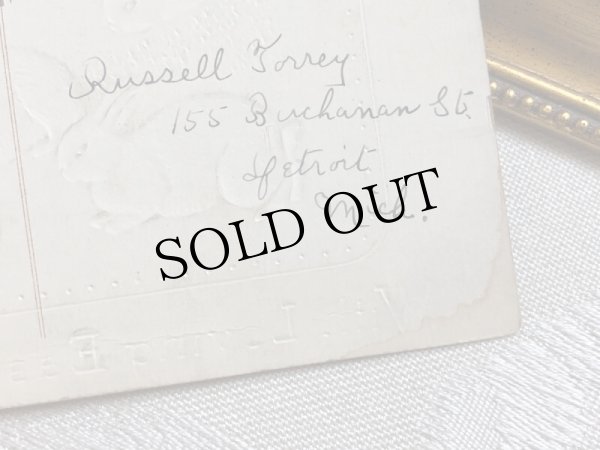 Russell Torrey
155 Buchanan St.
Detroit
Mich.
SOLD OUT